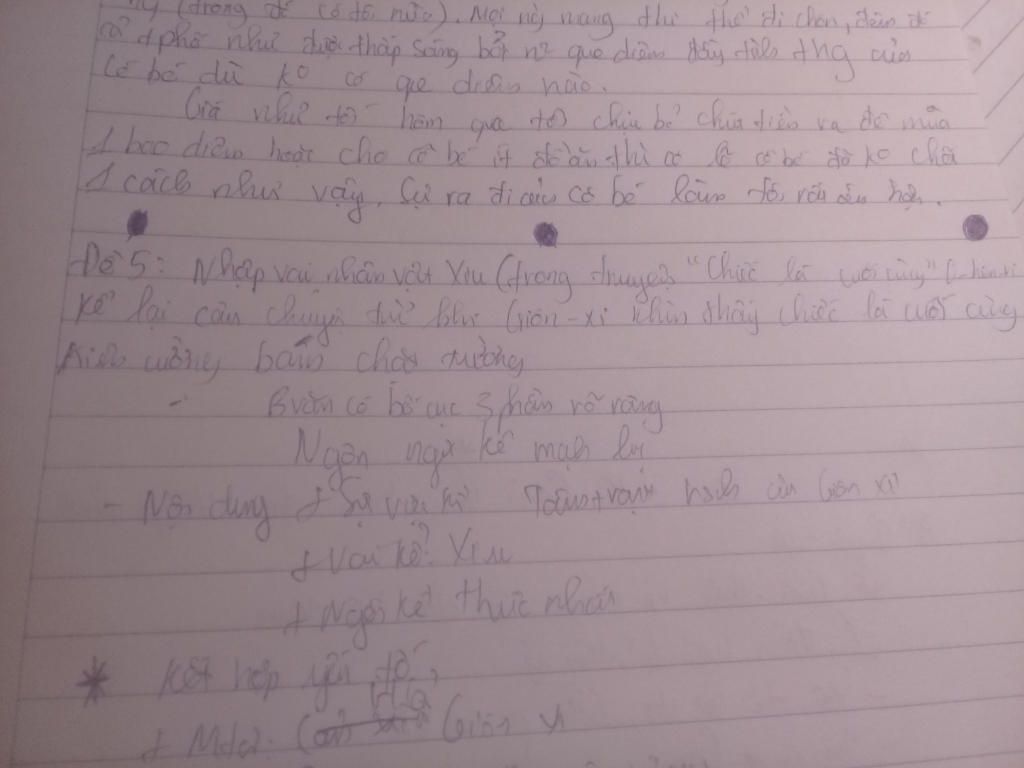 (trong đó có tôi nữa). Mọi ng mang thi thể đi chôn, đêm đó
cả tphố như được thắp sáng bởi n~ que diêm đầy tình thg của
cô bé dù ko có que diêm nào.
Giá như tối hôm qua tôi chịu bỏ chút tiền ra để mua
1 bao diêm hoặc cho cô bé ít đồ ăn thì có lẽ cô bé đã ko chết
1 cách như vậy. Sự ra đi của cô bé làm tôi rất ân hận.
Đề 5: Nhập vai nhân vật Xiu (trong truyện "Chiếc lá cuối cùng"
kể lại câu chuyện từ khi Giôn-xi nhìn thấy chiếc lá cuối cùng
kiên cường bám trên tường
- Bvăn có bố cục 3 phần rõ ràng
Ngôn ngữ kể mạch lạc
- Nội dung + Sự việc kể Tâm trạng của Giôn xi
+ Vai kể: Xiu
+ Ngôi kể thứ nhất
* Kết hợp yếu tố
+ Mtả: Giôn xi